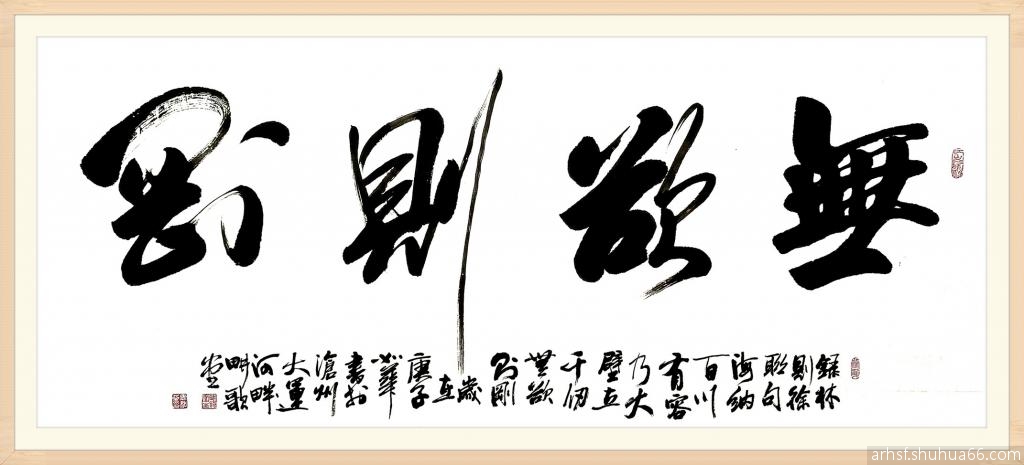 無欲則剛
錄林
則徐
聯句
海納
百川
有容
乃大
壁立
千仞
無欲
則剛
歲
在
庚子
華
書於
滄州
大運
河畔
畔歌
arhsf.shuhua66.com